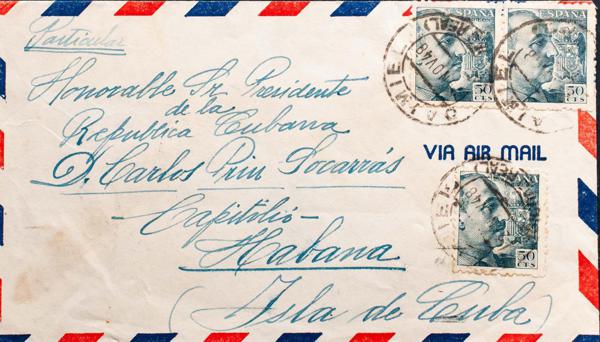 Particular
ESPAÑA
ESPAÑA
50
CTS
50
CTS
DAIMIEL
Honorable Sr Presidente
de la
Republica Cubana
D. Carlos Prin Socarrás
VIA AIR MAIL
- Capitolio -
Habana
(Isla de Cuba)
50
CTS